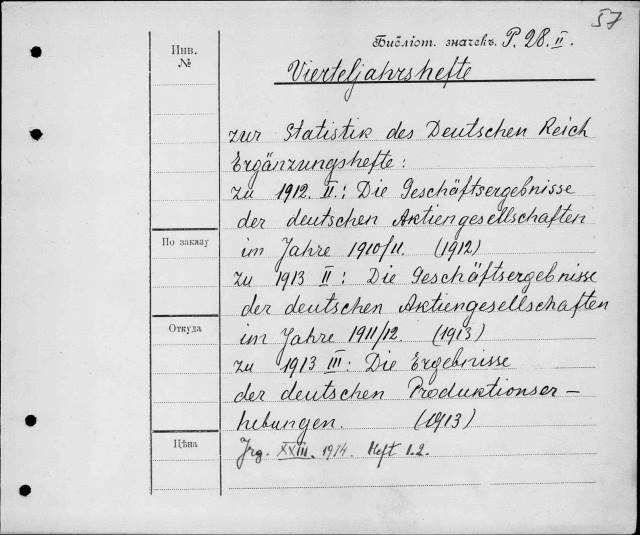 57
Инв.
№
Библіот. значекъ. P. 28. II.
Vierteljahrshefte
zur Statistik des Deutschen Reich
Ergänzungshefte:
zu 1912. II.: Die Geschäftsergebnisse
der deutschen Aktiengesellschaften
По заказу
im Jahre 1910/11. (1912)
zu 1913 II: Die Geschäftsergebnisse
der deutschen Aktiengesellschaften
Откуда
im Jahre 1911/12. (1913)
zu 1913 III: Die Ergebnisse
der deutschen Produktionser-
hebungen. (1913)
Цѣна
Jrg. XXIII. 1914. Heft 1.2.